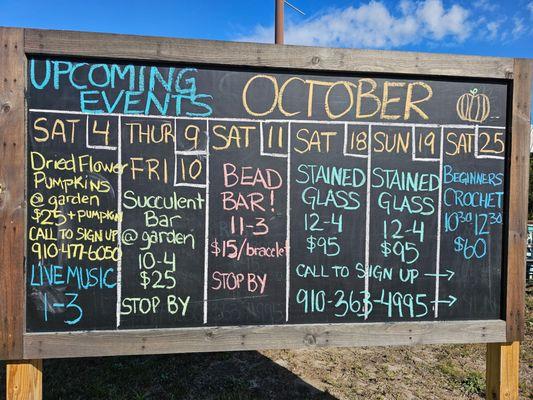 UPCOMING EVENTS
OCTOBER
SAT 4
Dried Flower
Pumpkins
@ garden
$25 + pumpkin
CALL TO SIGN UP
910-477-6050
LIVE MUSIC
1-3
THUR 9
FRI 10
Succulent
Bar
@ garden
10-4
$25
STOP BY
SAT 11
BEAD
BAR!
11-3
$15/bracelet
STOP BY
SAT 18
STAINED
GLASS
12-4
$95
SUN 19
STAINED
GLASS
12-4
$95
CALL TO SIGN UP →
910-363-4995 →
SAT 25
BEGINNERS
CROCHET
10:30-12:30
$60